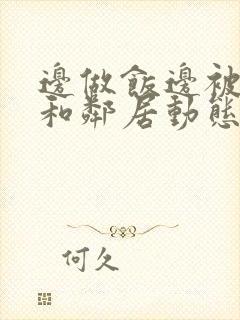 邊做飯邊被
和鄰居動態
何久